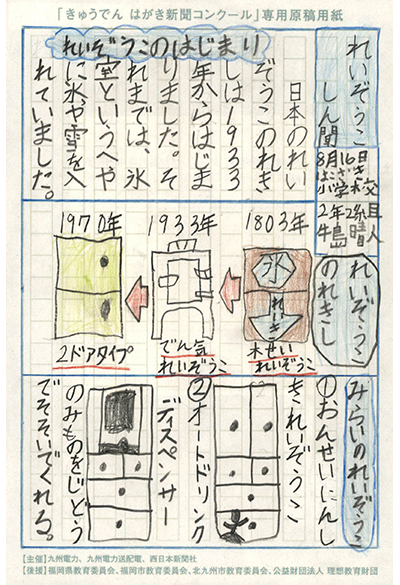 「きゅうでん はがき新聞コンクール」専用原稿用紙
れいぞうこ
しん聞
8月16日
小学校
2年2組
牛島晴人
れいぞうこのはじまり
日本のれい
ぞうこのれき
しは1933
年からはじま
りました。そ
れまでは、氷
室というへや
に氷や雪を入
れていました。
れいぞうこ
のれきし
1803年
氷
れいき
木せい
れいぞうこ
1933年
でん気
れいぞうこ
1970年
2ドアタイプ
みらいのれいぞうこ
①おんせいにんし
きれいぞうこ
②オートドリンク
ディスペンサー
のみものをじどう
でそそいでくれる。
【主催】九州電力、九州電力送配電、西日本新聞社
【後援】福岡県教育委員会、福岡市教育委員会、北九州市教育委員会、公益財団法人 理想教育財団